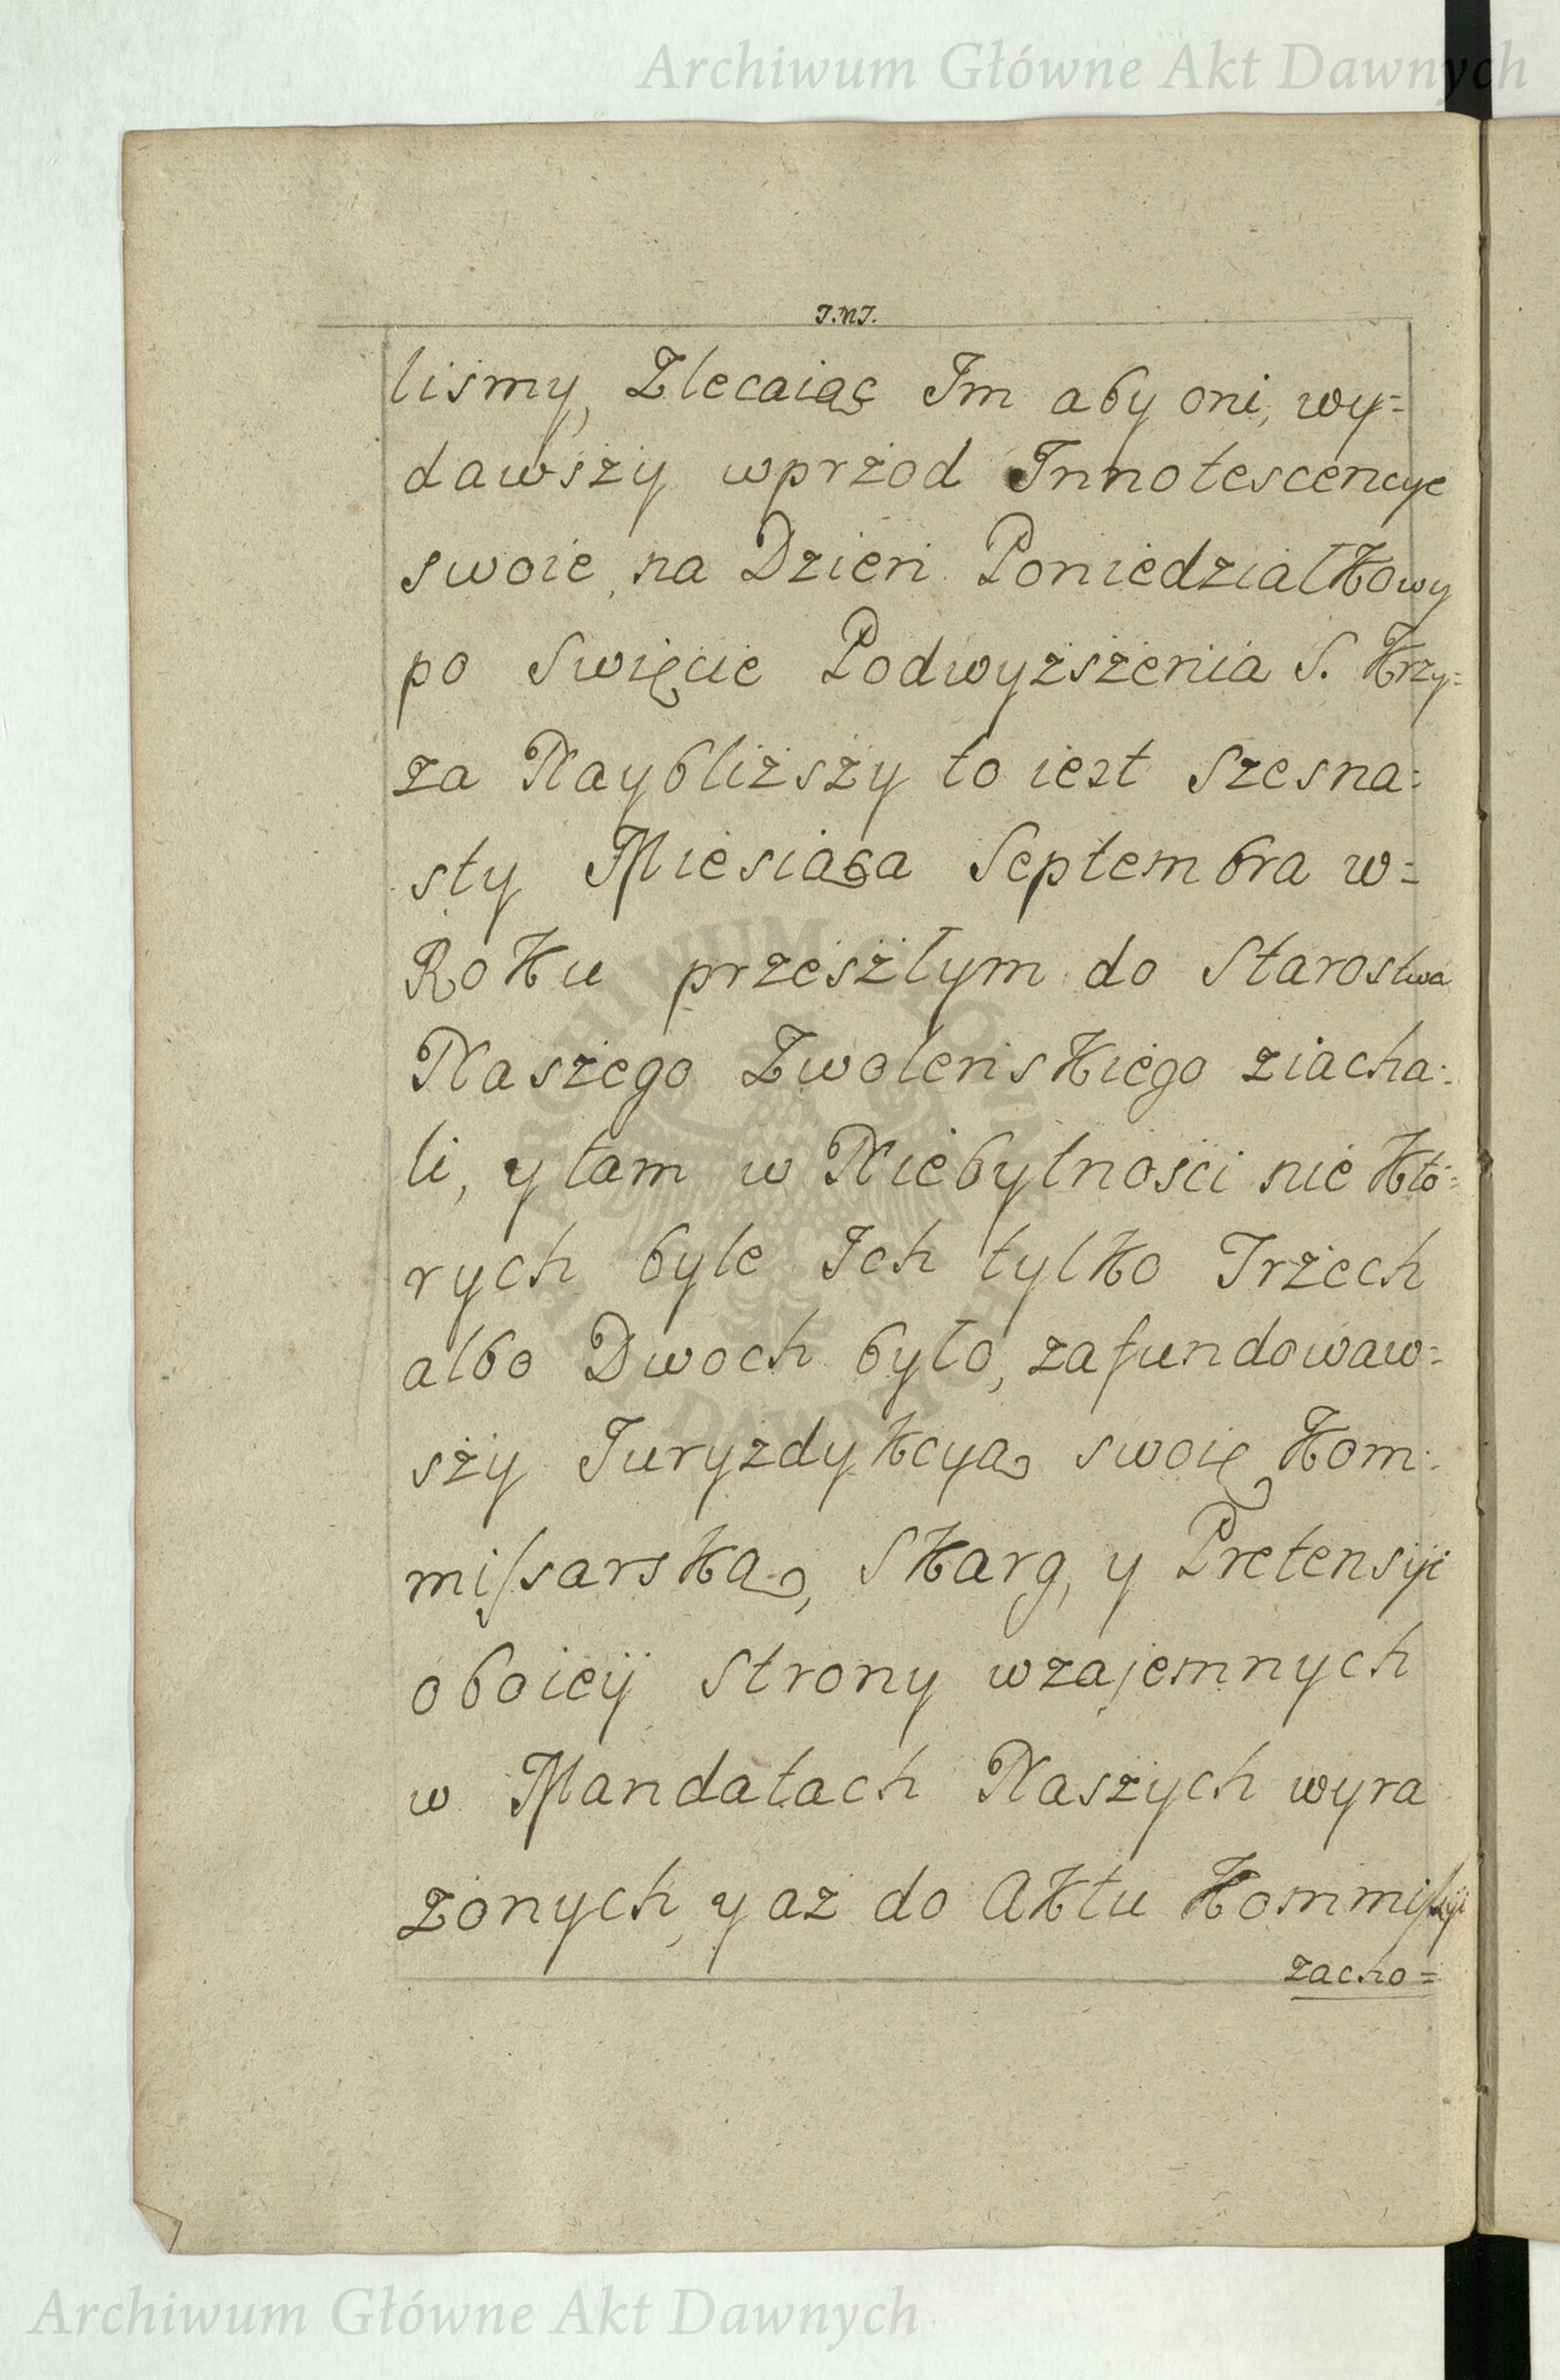 Archiwum Główne Akt Dawnych
J.M.J.
liśmy, Zlecaiąc Im aby oni, wy=
dawszy wprzod Innotescencye
swoie, na Dzień Poniedziałkowy
po Swięcie Podwyższenia S. Krzy=
za Naybliższy to iest Szesna=
sty Miesiąca Septembra w=
Roku przeszłym do Starostwa
Naszego Zwoleńskiego ziacha=
li, y tam w Niebytności nie któ=
rych byle Ich tylko Trzech
albo Dwoch było, zafundowaw=
szy Juryzdykcyą swoię Kom=
missarską, Skarg, y Pretensyi
oboiey Strony wzajemnych
w Mandatach Naszych wyra
żonych, y aż do Aktu Kommissyi
zacho=
ARCHIWUM GŁÓWNE AKT DAWNYCH
Archiwum Główne Akt Dawnych